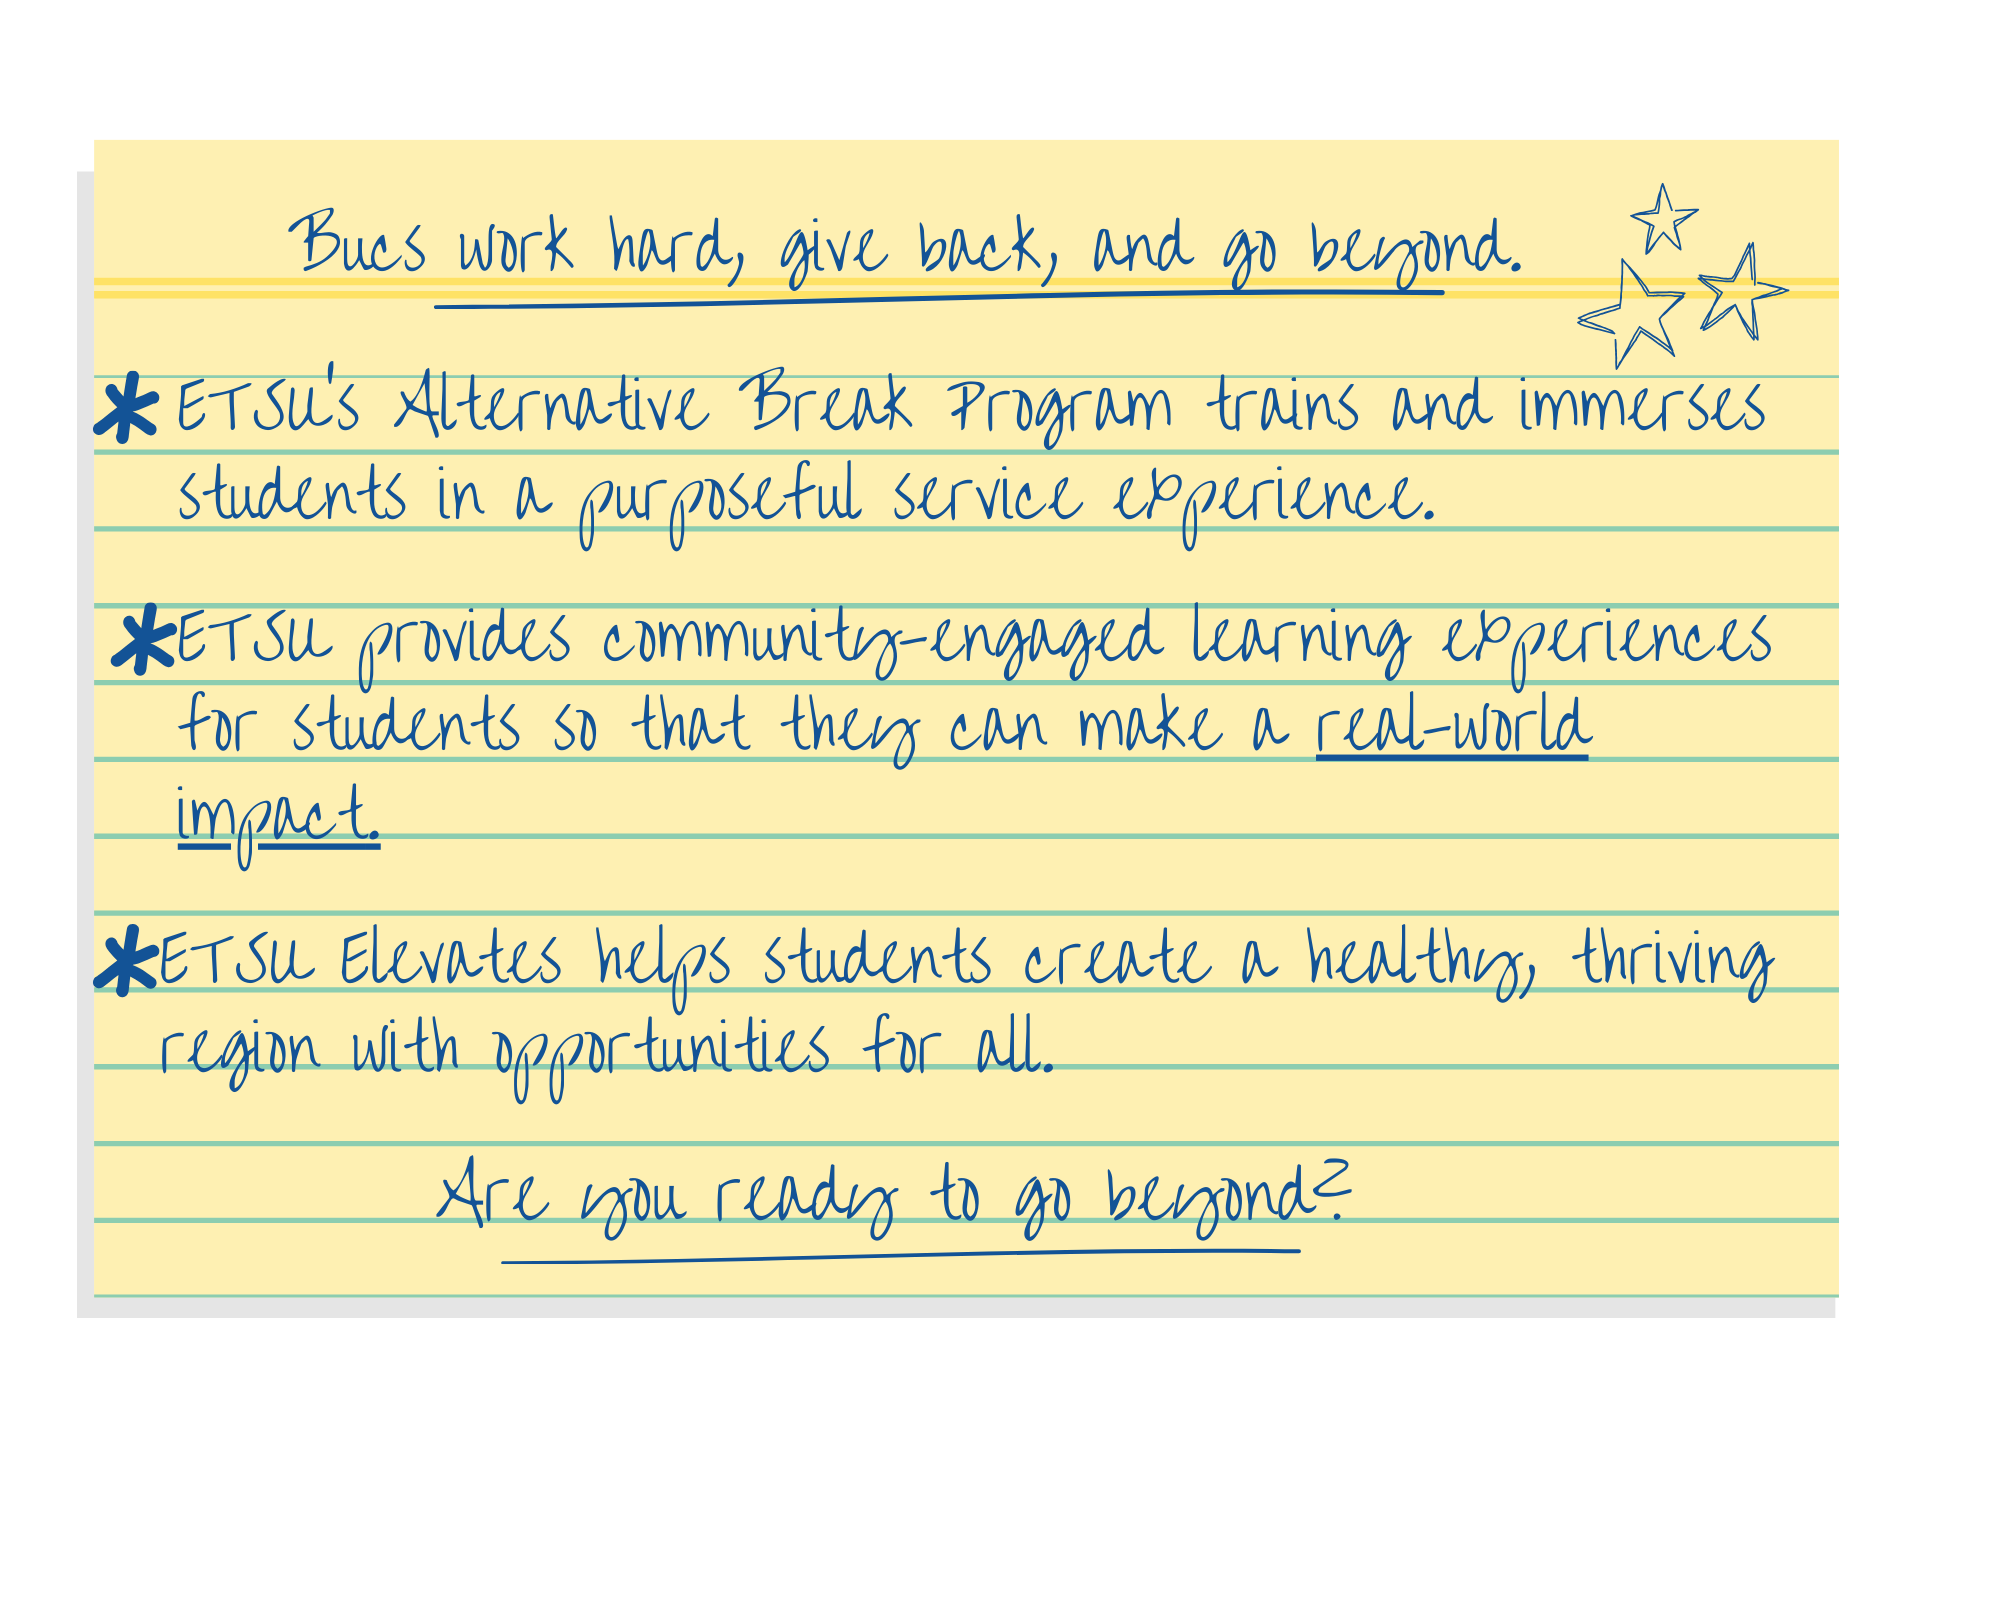 Bucs work hard, give back, and go beyond.
* ETSU's Alternative Break Program trains and immerses
students in a purposeful service experience.
* ETSU provides community-engaged learning experiences
for students so that they can make a real-world
impact.
* ETSU Elevates helps students create a healthy, thriving
region with opportunities for all.
Are you ready to go beyond?